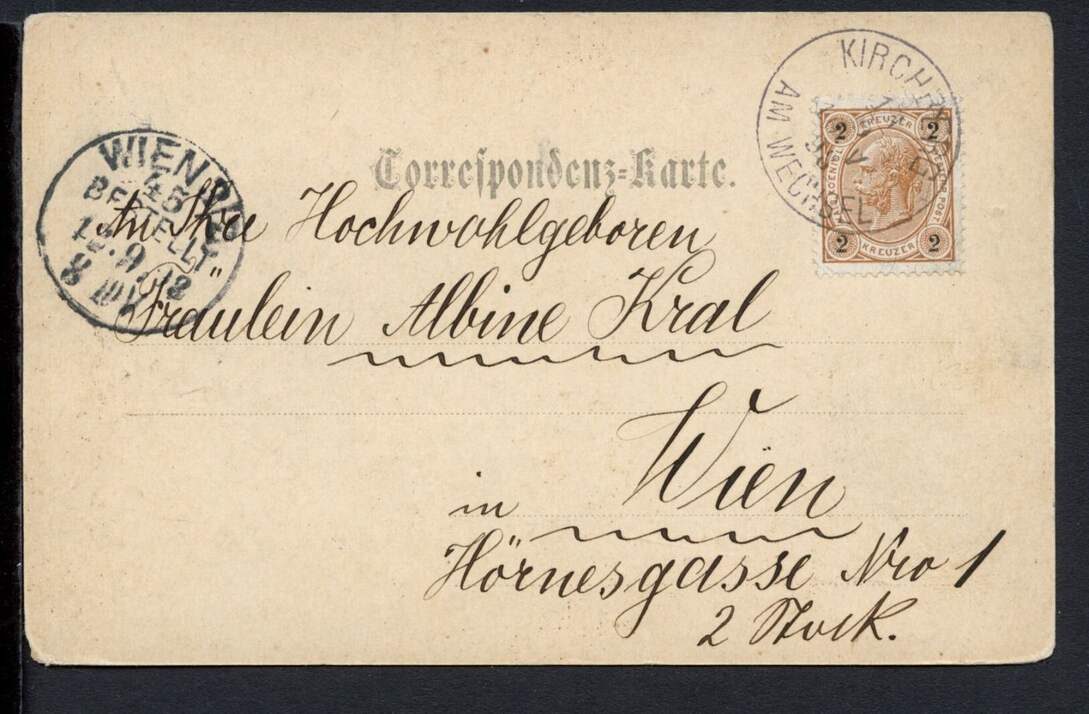 Correspondenz-Karte.
KIRCHB
AM WECHSEL
2 KREUZER 2
2 KREUZER 2
WIEN
BESTELLT
An Ihre Hochwohlgeboren
Fräulein Albine Kral
in Wien
Hörnesgasse Nro 1
2 Stock.